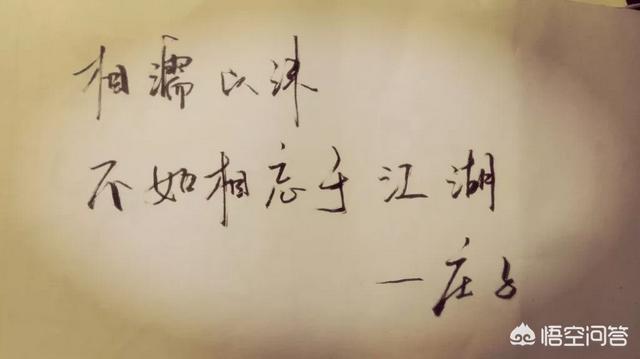 相濡以沫
不如相忘于江湖
—庄子
悟空问答